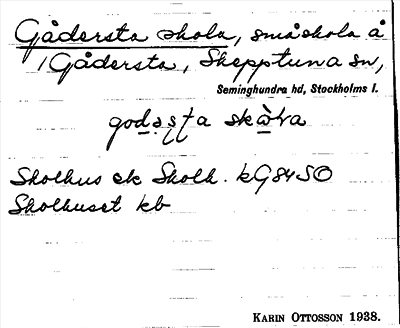 Gådersta skola, småskola å
/Gådersta, Skepptuna sn,
Seminghundra hd, Stockholms l.
godəsta skɷ̀la
Skolhus ek Skolh. kG84SO
Skolhuset kb
KARIN OTTOSSON 1938.